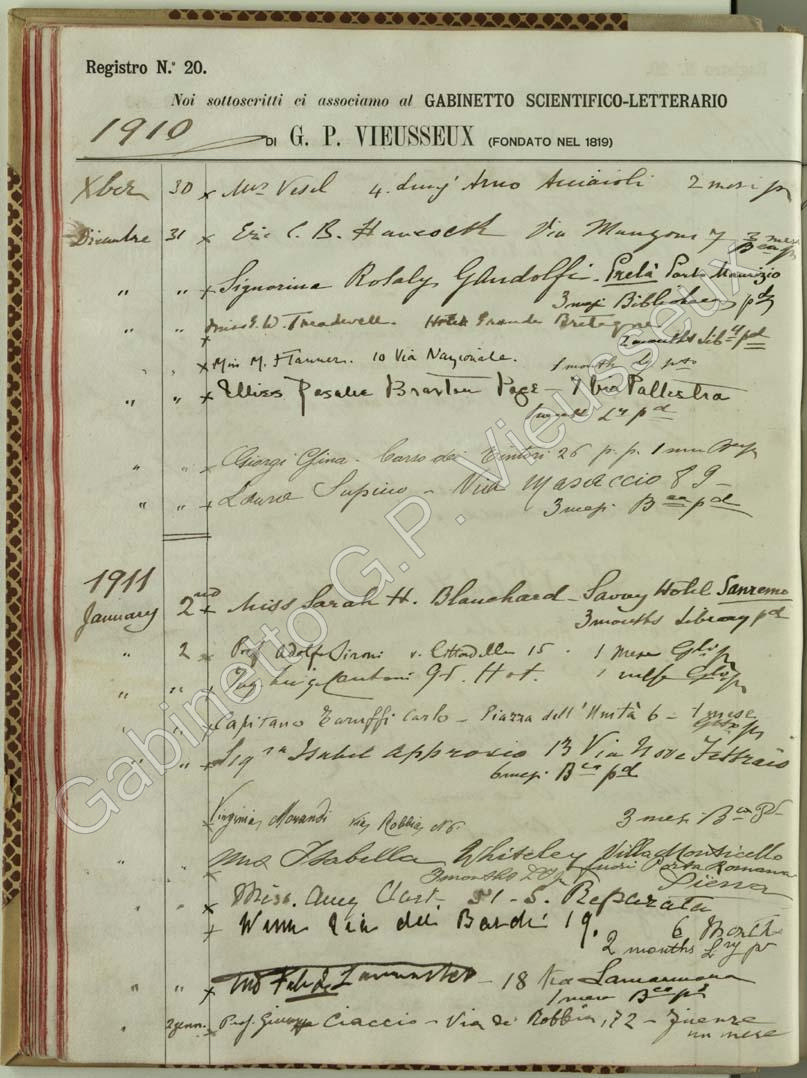 Registro N.º 20.
Noi sottoscritti ci associamo al GABINETTO SCIENTIFICO-LETTERARIO
1910
DI G. P. VIEUSSEUX (FONDATO NEL 1819)
Xber 30 x Vesel 4. Lung' Arno Acciaioli 2 mesi
Dicembre 31 x Eric C. B. Hancock Via Manzoni 7 3 mesi
" " x Signorina Rosaly Gandolfi. Prelà Porto Maurizio
3 mesi Biblioteca pd
" " x Miss E. W. Treadwell. Hotel Grande Bretagne
2 months Liby pd
" x Miss M. Flanner. 10 Via Nazionale. 1 month
" " x Miss Rosalie Braxton Page - 7 Via Pallestra
Ly pd
" " x Giorgi Gina. Corso dei Tintori 26 p. p. 1
" " x Laura Supino - Via Masaccio 89 -
3 mesi Bca pd
1911
January 2nd x Miss Sarah H. Blanchard - Savoy Hotel Sanremo
3 months Library pd
" 2 Prof Adolfo Sironi v. Cittadella 15. 1 mese
" " x Luigi Cantoni
" " x Capitano Taruffi Carlo - Piazza dell'Unità 6 - 1 mese
" " x Sigra Isabel Approsio 13 Via
6 mesi Bca pd
x Virginia Morandi via Robbia N 6. 3 mesi Bca pd
" Mrs Isabella Whiteley Villa Monticello
3 months fuori Porta Romana
Siena
" x Miss. Amy 51 - S. Reparata
x Via dei Bardi 19. 6 Month
2 months Lry pd
" " x - 18 Via Lamarmora
1 mese Bca pd
" 2 genn. x Prof. Giuseppe Ciaccio - Via di Robbia, 72 - Firenze
un mese
Gabinetto G.P. Vieusseux